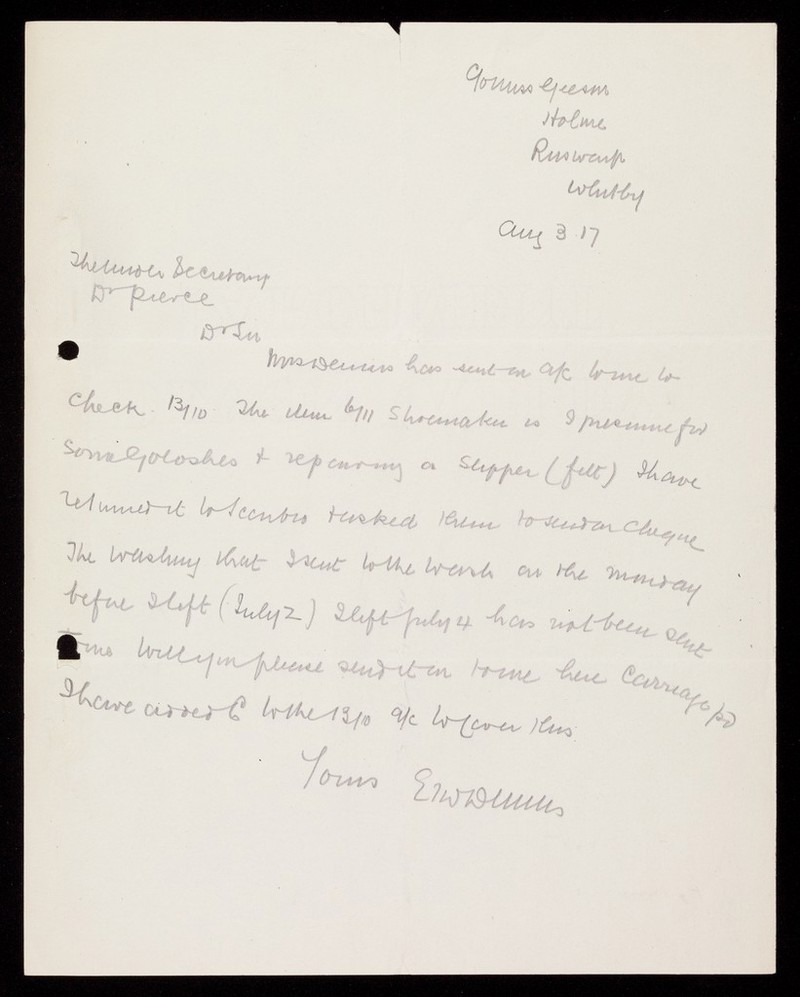 C/o Miss Geeson
Holme
Ruswarp
Whitby
Aug 3 17
The Under Secretary
Dr Pierce
Dr Sir
Mrs Dennis has sent on a/c to me to
check. 13/10 The item 6/11 Shoemaker is I presume for
Some Goloshes & repairing a Slipper (felt) I have
returned it to & asked them to send on Cheque
The Washing that I sent to the Wash on the Monday
before I left (July 2) I left July 4 has not been sent
to me Will you please send it on to me here Carriage pd
I have added 6 to the 13/10 a/c to Cover this.
Yours E W Dennis